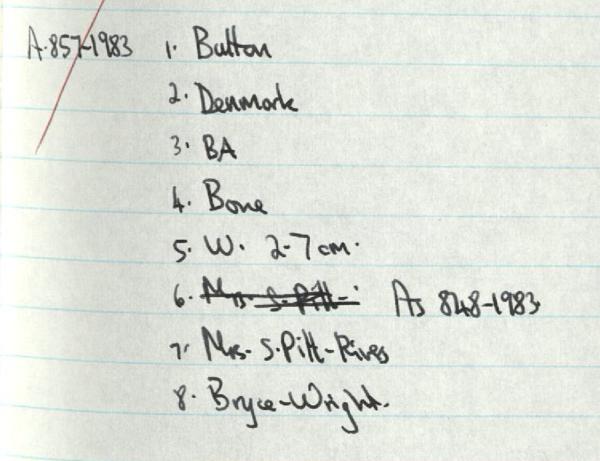 A.857-1983 1. Button
2. Denmark
3. BA
4. Bone
5. W. 2-7 cm.
6. Mrs. S. Pitt- As 848-1983
7. Mrs. S. Pitt-Rivers
8. Bryce-Wright.